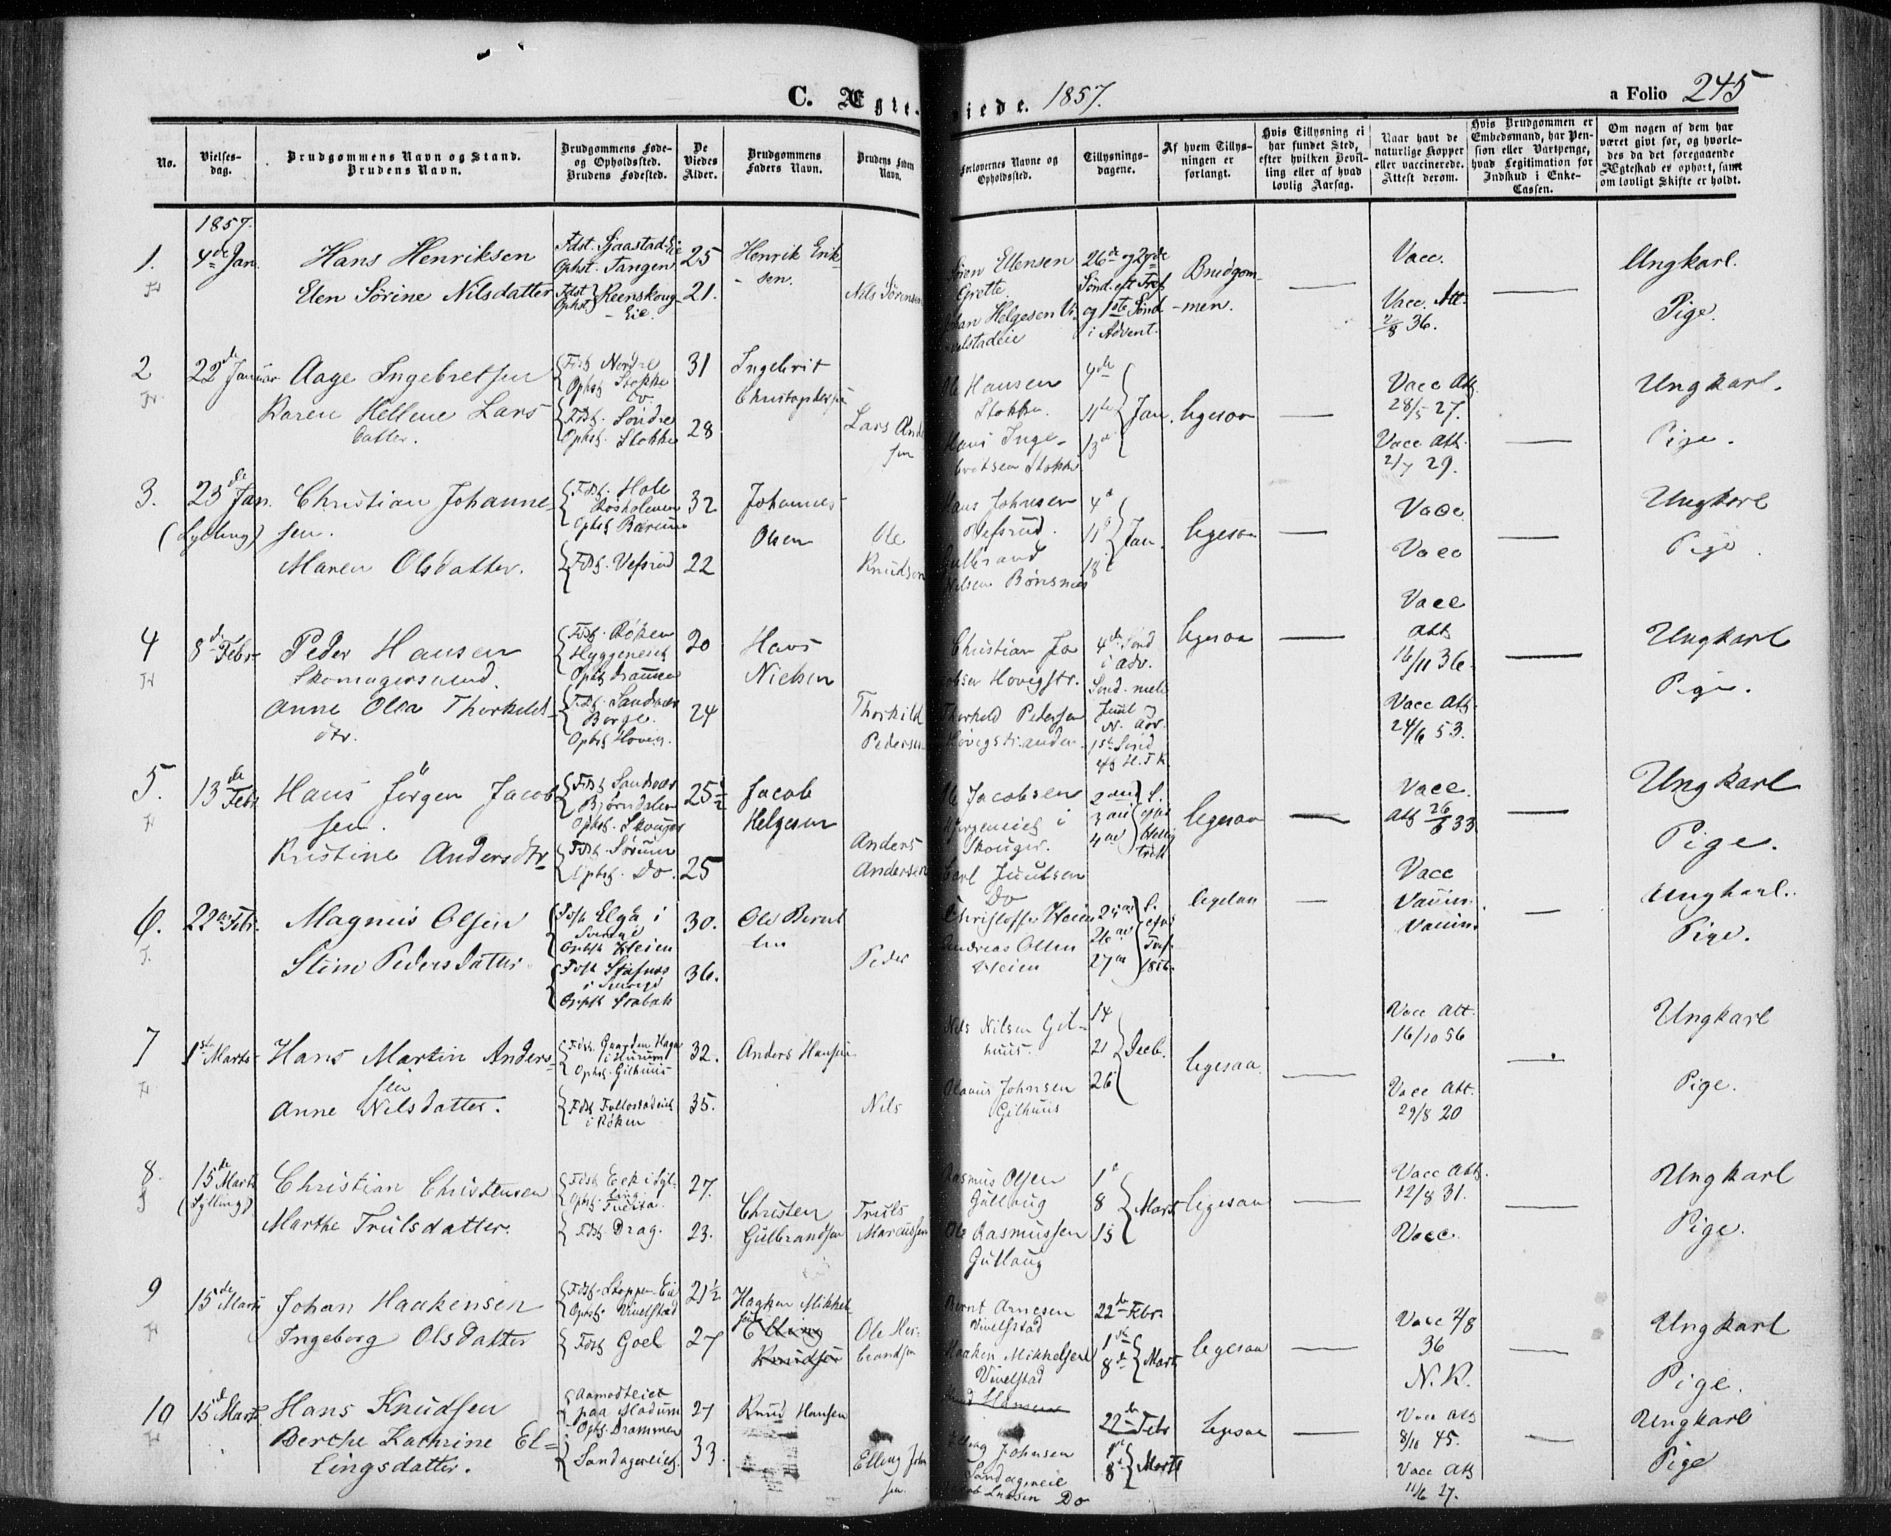 C. Ægte- viede. 1857.
a Folio 245
No.
Vielses-
dag.
Brudgommens Navn og Stand.
Brudens Navn.
Brudgommens Føde-
og Opholdssted.
Brudens Fødested.
De
Viedes
Alder.
Brudgommens
Faders Navn.
Brudens Faders
Navn.
Forlovernes Navne og
Opholdssted.
Tillysnings-
dagene.
Af hvem Tillys-
ningen er
forlangt.
Hvis Tillysning ei
har fundet Sted,
efter hvilken Bevil-
ling eller af hvad
lovlig Aarsag.
Naar havt de
naturlige Kopper
eller vaccinerede.
Attest derom.
Hvis Brudgommen er
Embedsmand, har Pen-
sion eller Vartpenge,
hvad Legitimation for
Indskud i Enke-
Cassen.
Om nogen af dem har
været gift før, og hvorle-
des da det foregaaende
Ægteskab er ophørt, samt
om lovligt Skifte er holdt.
1857.
1. 4de Jan. Hans Henriksen
Fdst. Sjaastad Eie
Ophst. Tangen
25 Henrik Erik-
sen.
Elen Sørine Nilsdatter
Fdst Ophst Reenskoug
Eie.
21. Nils Sørensen
Ellensen
Grette
Johan Helgesen
26de og 27de
Sønd. eft Tref
og 1ste Sønd
i Advent
Brudgom-
men.
Vacc.
Vacc. Att.
2/8 36.
Ungkarl.
Pige.
2 22de Januar Aage Ingebretsen
Fdst Nordre
Ophst Stokke
31 Ingebrit
Christophersen
Karen Hellene Lars-
datter.
Fdst. Søndre
Ophst Stokke
28 Lars
Ole Hansen
Stokke.
Hans Inge-
britsen Stokke
4de
11te
Jan.
ligesaa
Vacc Att.
28/5 27.
Vacc Att.
2/7 29.
Ungkarl.
Pige.
3. 23de Jan.
(Sylling)
Christian Johanne-
sen.
Fdst. Hole
Ophst Bærum
32 Johannes
Olsen
Maren Olsdatter.
Fdst. Vefsrud
22 Ole
Knudsen
Hans Johnesen
Vefsrud.
Gulbrand
Nilsen Bønsnæs
4d
11
18
Jan.
ligesaa
Vacc
Vacc
Ungkarl
Pige
4 8de Febr. Peder Hansen
Skomagersvend.
Fdst. Røken
Hyggeneiet
Ophst Dramen
20 Hans
Nielsen
Anne Olea Thorkilds-
dtr.
Fdst. Sandvær
Berge.
Ophst Hovig.
24 Thorkild
Pedersen
Christian Ja-
cobsen Hovigstr.
Thorkild Pedersen
Hovigstranden.
4de Sønd
i Adv.
Sønd. mell
Juul og
N. Aar.
1ste Sønd
ligesaa
Vacc
Att
16/11 36.
Vacc Att.
24/6 53.
Ungkarl
Pige.
5. 13de Febr Hans Jørgen Jacob-
sen.
Fdst Sandvær
Bjørndalen
Ophst. Skouger
25½ Jacob
Helgesen
Kristine Andersdtr
Fdst. Sørum
Ophst. Do.
25 Anders
Andersen
Ole Jacobsen
i
Skouger.
Carl Juulsen
Do
2den
3die
4de
S.
efter
Hellig
trek
ligesaa
Vacc.
Att 26/6 33
Vacc
Ungkarl
Pige.
6. 22de Febr. Magnus Olsen
Fdst Elga i
Sverige
Ophst Heien
30. Ole Bernt
sen
Stine Pedersdatter
Fdst
i Sverige
Ophst Stabæk
36. Peder
Christoffer Heien
Andreas Olsen
Heien
25de
26de
27de
S.
efter
Tref.
1856.
ligesaa
Vaccin.
Vaccin.
Ungkarl.
Pige.
7 1ste Marts Hans Martin Anders-
sen
Fdst. Gaarden Haga
i Hurum
Ophst. Gilhuus
32. Anders Hansen
Anne Nilsdatter.
Fdst Follestadeiet
i Røken
35. Nils
Nils Nilsen Gil-
huus.
Olaus Johnsen
Gilhuus
14
21
26
Decb.
ligesaa.
Vacc Att.
16/10 56
Vacc Att.
29/8 20
Ungkarl
Pige.
8. 15de Marts
(Sylling)
Christian Christensen
Fdst Eek i Syl-
ling
27. Christen
Gulbrandsen
Marthe Trulsdatter.
Fdst Drag.
23. Truls
Marcussen
Rasmus Olsen
Gullaug
Ole Rasmussen
Gullaug
1d
8
15
Marts
ligesaa
Vacc Att.
12/8 31.
Vacc.
Ungkarl
Pige.
9 15de Marts Johan Haakensen
Fdst. Stoppen Eie
Ophst. Vivelstad
21½ Haaken Mikkel
sen
Elling
Knudsen
Ingeborg Olsdatter
Fdst Goel
27 Ole Her-
brandsen
Bernt Arnesen
Vivelstad
Haaken Mikkelsen
Vivelstad
22de Febr.
1ste
8de
Marts
ligesaa
Vacc 2/8
36
N.K.
Ungkarl
Pige.
10 15de Marts Hans Knudsen
Aamodteiet
paa Modum
Ophst. Drammen
27 Knud Hansen
Berthe Kathrine El-
lingsdatter.
Sandageriet
33. Elling John
sen.
Knud Hansen
Elling Johnsen
Sandageriet
Do
22de Febr
1ste
8de
Marts
ligesaa
Vacc Att
8/10 45.
Vacc Att
11/6 27.
Ungkarl
Pige